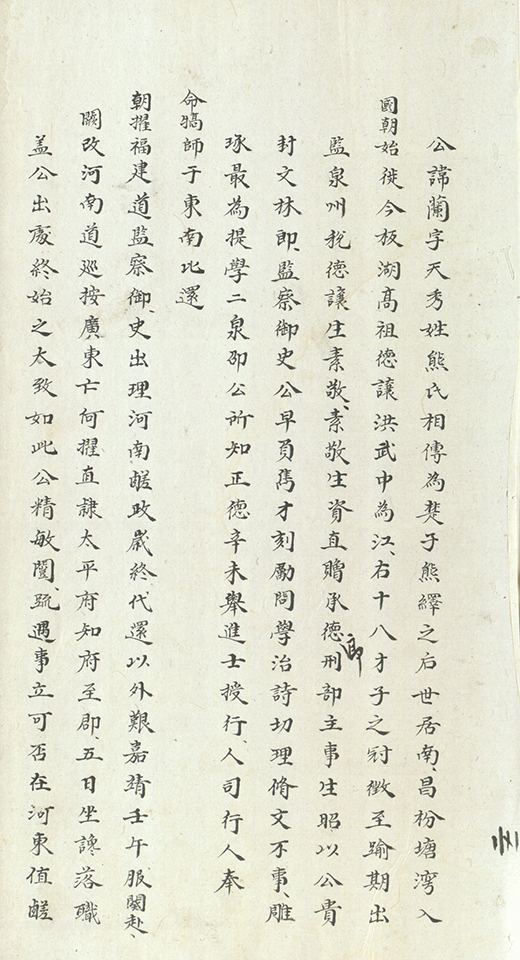 公諱蘭字天秀姓熊氏相傳為楚子熊繹之后世居南昌枌塘灣入
國朝始徙今板湖高祖德讓洪武中為江右十八才子之冠徵至踰期出
監泉州稅德讓生素敬素敬生資直贈承德郎刑部主事生昭以公貴
封文林郎監察御史公早負雋才刻勵問學治詩切理脩文不事雕
琢最為提學二泉邵公所知正德辛未舉進士授行人司行人奉
命犒師于東南比還
朝擢福建道監察御史出理河南鹺政歲終代還以外艱嘉靖壬午服闋赴
闕改河南道巡按廣東亡何擢直隸太平府知府至郡五日坐讒落職
盖公出處終始之大致如此公精敏闓疏遇事立可否在河東值鹺